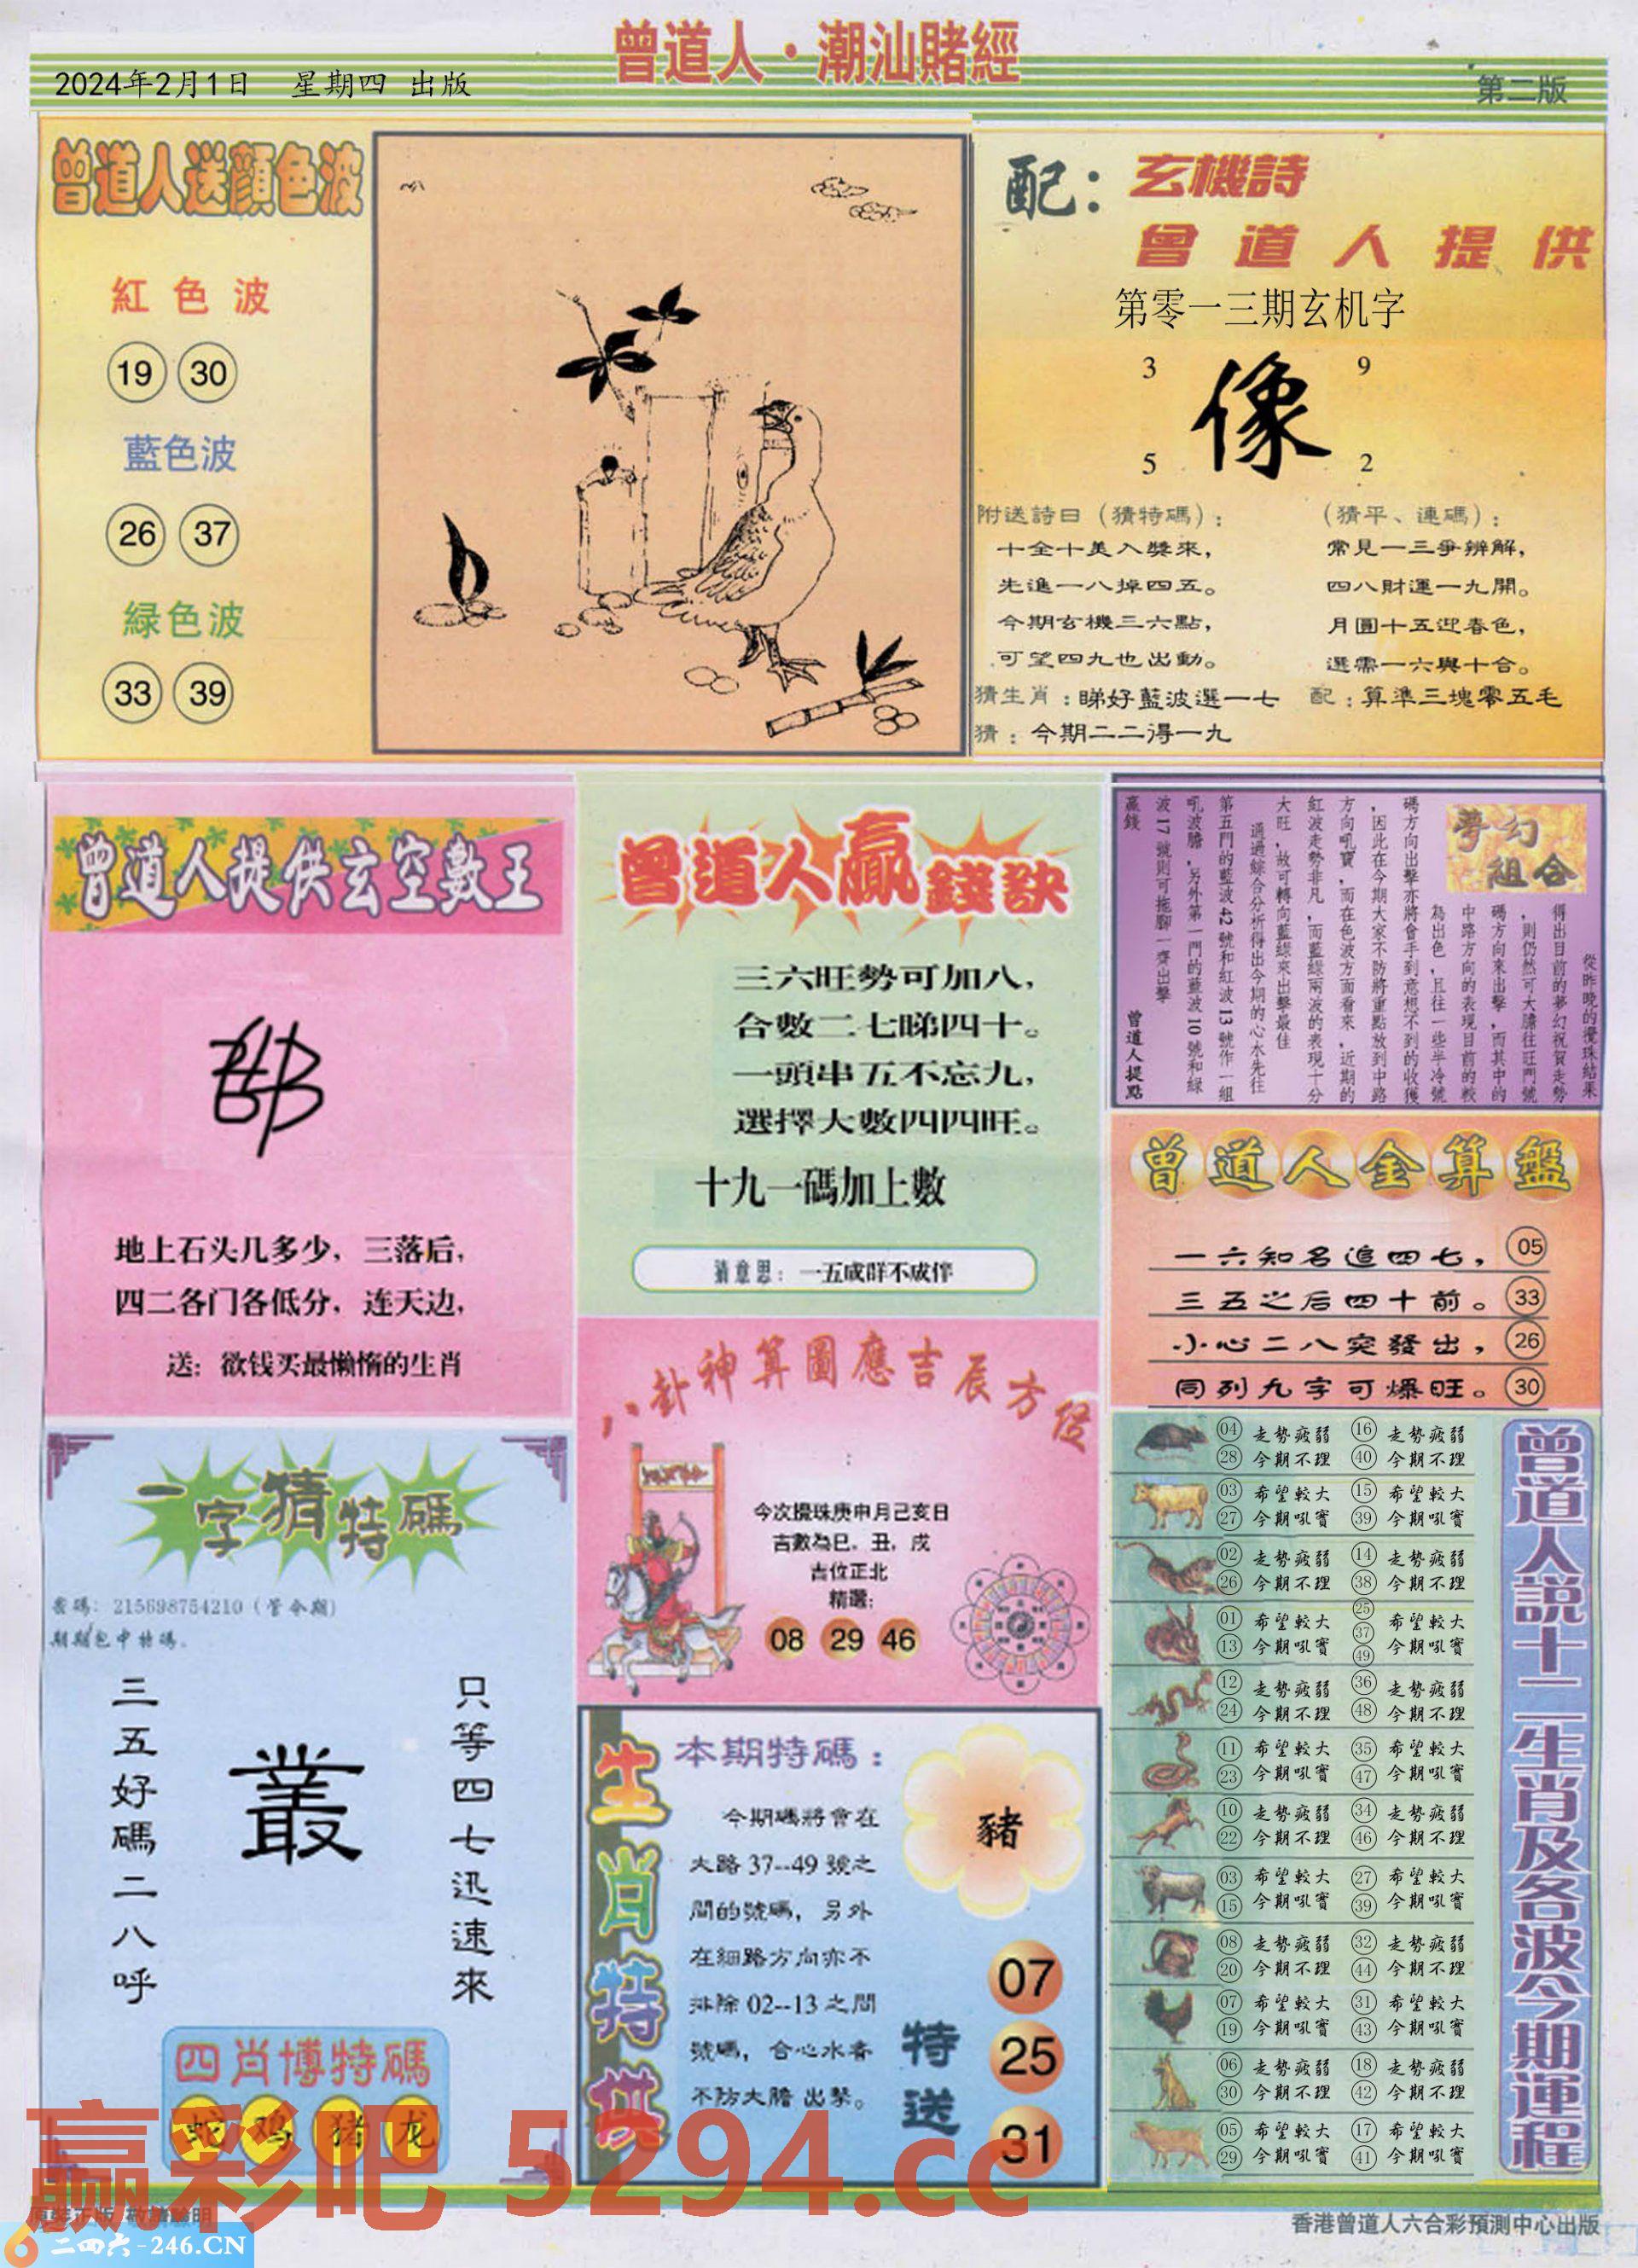 曾道人·潮汕賭經
2024年2月1日 星期四 出版
第二版
曾道人送顔色波
紅色波
19 30
藍色波
26 37
緑色波
33 39
配：玄機詩
曾道人提供
第零一三期玄机字
3 9
像
5 2
附送詩日（猜特碼）：
十全十美入獎來，
先進一八掉四五。
今期玄機三六點，
可望四九也出動。
（猜平、連碼）：
常見一三爭辨解，
四八財運一九開。
月圓十五迎春色，
選需一六與十合。
猜生肖：睇好藍波選一七
配：算準三塊零五毛
猜：今期二二得一九
曾道人提供玄空數王
地上石头几多少，三落后，
四二各门各低分，连天边，
送：欲钱买最懒惰的生肖
曾道人贏錢訣
三六旺勢可加八，
合數二七睇四十。
一頭串五不忘九，
選擇大數四四旺。
十九一碼加上數
猜意思：一五成群不成伴
夢幻組合
從昨晚的攪珠結果
得出目前的夢幻祝賀走勢
，則仍然可大膽往旺門號
碼方向來出擊，而其中的
中路方向的表現目前的較
為出色，且往一些半冷號
碼方向出擊亦將會手到意想不到的收獲
，因此在今期大家不防將重點放到中路
方向吼寶，而在色波方面看來，近期的
紅波走勢非凡，而藍綠兩波的表現十分
大旺，故可轉向藍綠來出擊最佳
通過綜合分析得出今期的心水先往
第五門的藍波42號和紅波13號作一組
吼波膽，另外第一門的藍波10號和綠
波17號則可拖腳一齊出擊
贏錢
曾道人提點
曾道人金算盤
一六知名追四七， 05
三五之后四十前。 33
小心二八突發出， 26
同列九字可爆旺。 30
八卦神算圖應吉辰方位
今次攪珠庚申月己亥日
吉數為巳，丑，戌
吉位正北
精選：
08 29 46
一字猜特碼
密碼：215698754210（管今期）
期期包中特碼。
只等四七迅速來
叢
三五好碼二八呼
四肖博特碼
蛇 鸡 猪 龙
生肖特供
本期特碼：
今期碼將會在
大路37--49號之
間的號碼，另外
在細路方向亦不
排除02--13之間
號碼，合心水者
不防大膽出擊。
豬
特送
07
25
31
曾道人說十二生肖及各波今期運程
04 走势疲弱 16 走势疲弱
28 今期不理 40 今期不理
03 希望較大 15 希望較大
27 今期吼寳 39 今期吼寳
02 走势疲弱 14 走势疲弱
26 今期不理 38 今期不理
01 希望較大 25 37 49 希望較大
13 今期吼寳 今期吼寳
12 走势疲弱 36 走势疲弱
24 今期不理 48 今期不理
11 希望較大 35 希望較大
23 今期吼寳 47 今期吼寳
10 走势疲弱 34 走势疲弱
22 今期不理 46 今期不理
03 希望較大 27 希望較大
15 今期吼寳 39 今期吼寳
08 走势疲弱 32 走势疲弱
20 今期不理 44 今期不理
07 希望較大 31 希望較大
19 今期吼寳 43 今期吼寳
06 走势疲弱 18 走势疲弱
30 今期不理 42 今期不理
05 希望較大 17 希望較大
29 今期吼寳 41 今期吼寳
赢彩吧 5294.cc
原裝正版 敬請驗明
二四六-246.CN
香港曾道人六合彩預測中心出版